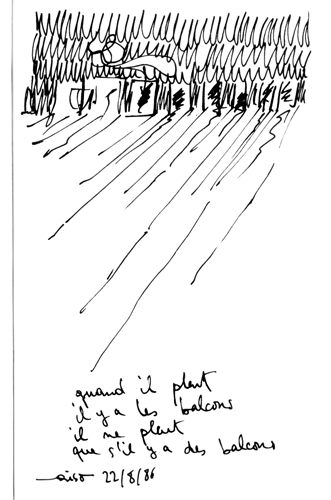 quand il pleut
il y a les balcons
il ne pleut
que s'il y a des balcons
22/8/86